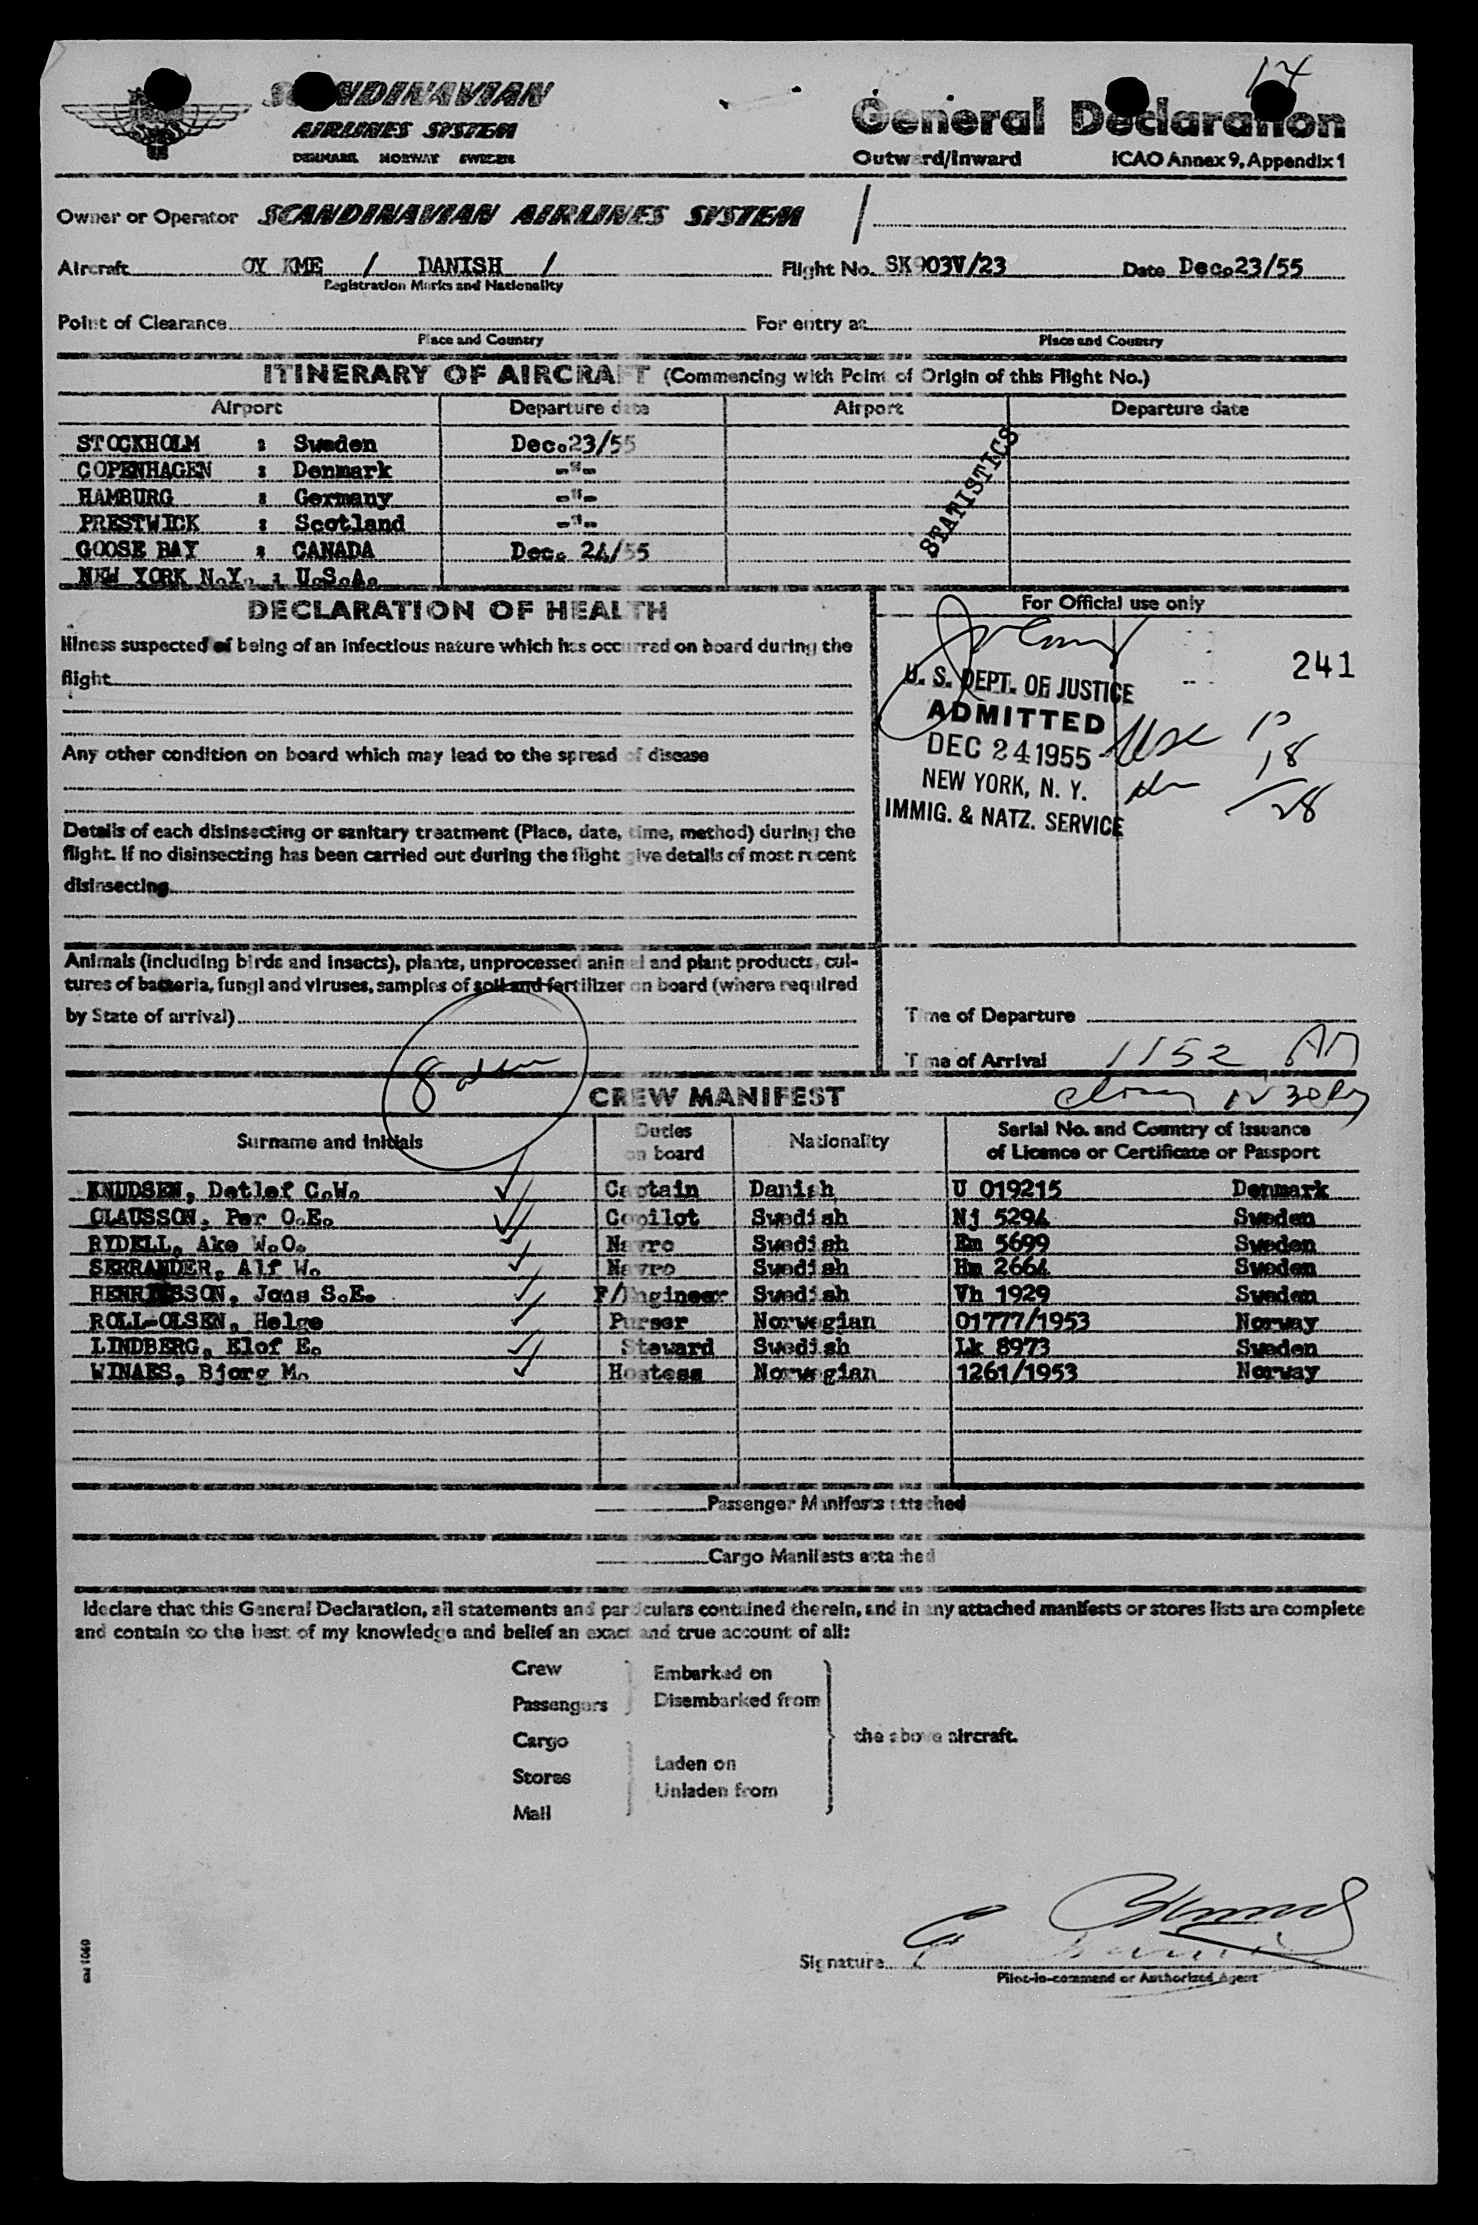 14
SCANDINAVIAN
AIRLINES SYSTEM
DENMARK NORWAY SWEDEN
General Declaration
Outward/Inward ICAO Annex 9, Appendix 1
Owner or Operator SCANDINAVIAN AIRLINES SYSTEM /
Aircraft OY KME / DANISH / Flight No. SK903V/23 Date Dec.23/55
Registration Marks and Nationality
Point of Clearance For entry at
Place and Country Place and Country
ITINERARY OF AIRCRAFT (Commencing with Point of Origin of this Flight No.)
Airport Departure date Airport Departure date
STOCKHOLM : Sweden Dec.23/55
COPENHAGEN : Denmark -"-
HAMBURG : Germany -"-
PRESTWICK : Scotland -"-
GOOSE BAY : CANADA Dec. 24/55
NEW YORK N.Y. : U.S.A.
STATISTICS
DECLARATION OF HEALTH
Illness suspected of being of an infectious nature which has occurred on board during the
flight
Any other condition on board which may lead to the spread of disease
Details of each disinsecting or sanitary treatment (Place, date, time, method) during the
flight. If no disinsecting has been carried out during the flight give details of most recent
disinsecting
For Official use only
241
U. S. DEPT. OF JUSTICE
ADMITTED
DEC 24 1955
NEW YORK, N. Y.
IMMIG. & NATZ. SERVICE
18
28
Animals (including birds and insects), plants, unprocessed animal and plant products, cul-
tures of bacteria, fungi and viruses, samples of soil and fertilizer on board (where required
by State of arrival)
Time of Departure
Time of Arrival 1152 AM
8
CREW MANIFEST
Surname and Initials Duties on board Nationality Serial No. and Country of Issuance of Licence or Certificate or Passport
KNUDSEN, Detlef C.W. Captain Danish U 019215 Denmark
CLAUSSON, Per O.E. Copilot Swedish Nj 5294 Sweden
RYDELL, Ake W.O. Navro Swedish Em 5699 Sweden
SERRANDER, Alf W. Navro Swedish Hm 2664 Sweden
HENRIKSSON, Jons S.E. F/Engineer Swedish Vh 1929 Sweden
ROLL-OLSEN, Helge Purser Norwegian 01777/1953 Norway
LINDBERG, Elof E. Steward Swedish Lk 8973 Sweden
WINAES, Bjorg M. Hostess Norwegian 1261/1953 Norway
Passenger Manifests attached
Cargo Manifests attached
I declare that this General Declaration, all statements and particulars contained therein, and in any attached manifests or stores lists are complete
and contain to the best of my knowledge and belief an exact and true account of all:
Crew
Passengers
Embarked on
Disembarked from
Cargo
Stores
Mail
Laden on
Unladen from
the above aircraft.
Signature
Pilot-in-command or Authorized Agent